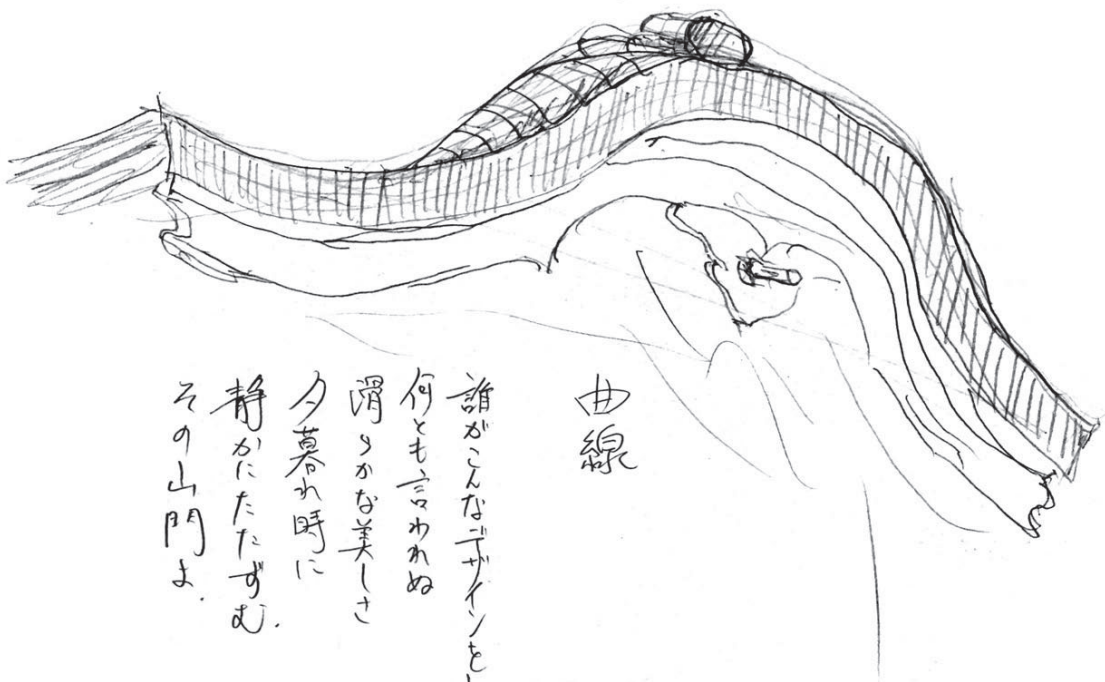 曲線
誰がこんなデザインを
何とも言われぬ
滑らかな美しさ
夕暮れ時に
静かにたたずむ.
その山門よ.